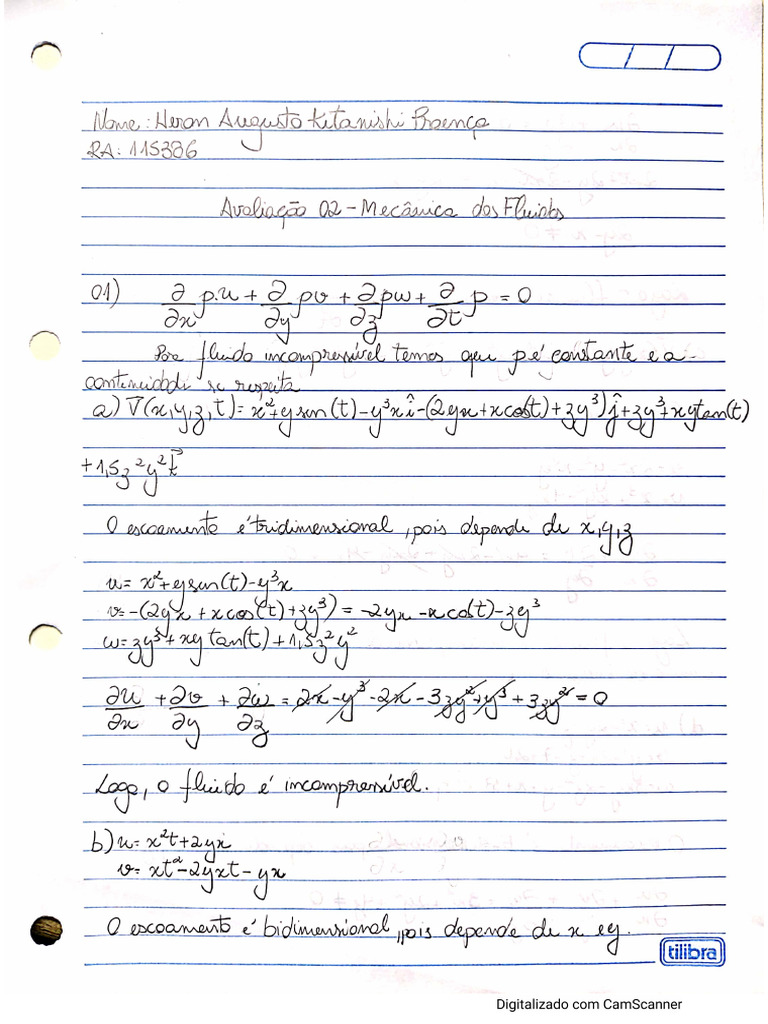 / /
Nome: Heron Augusto Kitanishi Proença
RA: 115386
Avaliação 02 - Mecânica dos Fluidos
01) ∂/∂x ρ.u + ∂/∂y ρv + ∂/∂z ρw + ∂/∂t ρ = 0
Para fluido incompressível temos que ρ é constante e a
continuidade se respeita
a) V⃗(x,y,z,t) = x²+y sen(t) - y³x î - (2yx + x cos(t) + zy³) ĵ + zy³ + xy tan(t)
+ 1,5z²y² k⃗
O escoamento é tridimensional, pois depende de x,y,z
u = x² + y sen(t) - y³x
v = -(2yx + x cos(t) + zy³) = -2yx - x cos(t) - zy³
w = zy³ + xy tan(t) + 1,5z²y²
∂u/∂x + ∂v/∂y + ∂w/∂z = 2x - y³ - 2x - 3zy² + y³ + 3zy² = 0
Logo, o fluido é incompressível.
b) u = x²t + 2yx
v = xt² - 2yxt - yx
O escoamento é bidimensional, pois depende de x e y.
tilibra
Digitalizado com CamScanner